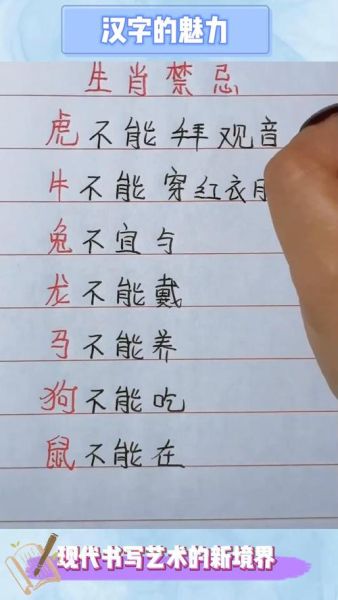 汉字的魅力
生肖禁忌
虎不能拜观音
牛不能穿红衣
兔不宜与
龙不能戴
马不能养
狗不能吃
鼠不能在
现代书写艺术的新境界